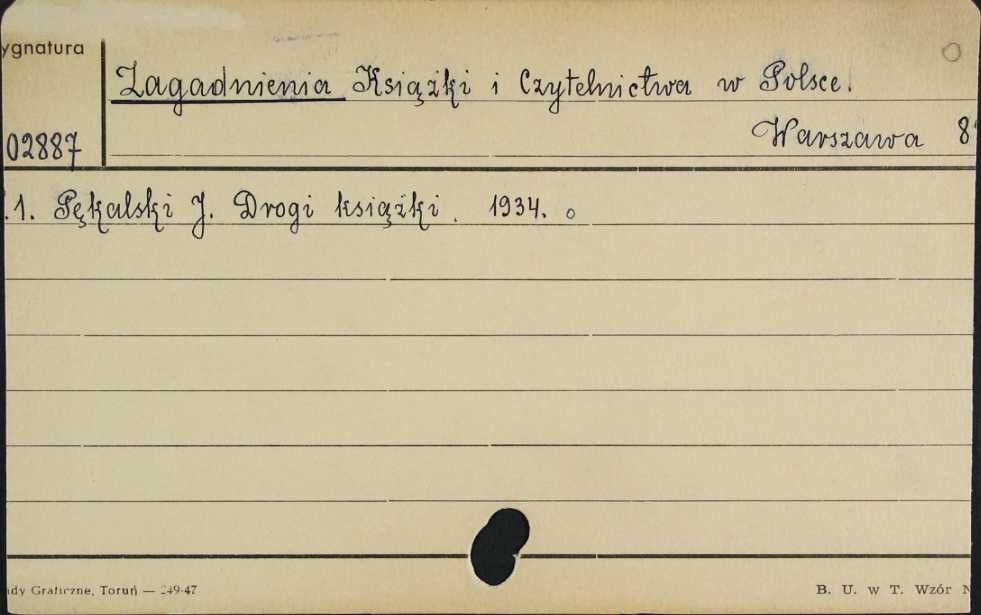 ygnatura
Zagadnienia Książki i Czytelnictwa w Polsce.
02887
Warszawa 8°
.1. Pękalski J. Drogi książki. 1934.
ady Graficzne, Toruń — 249-47
B. U. w T. Wzór N